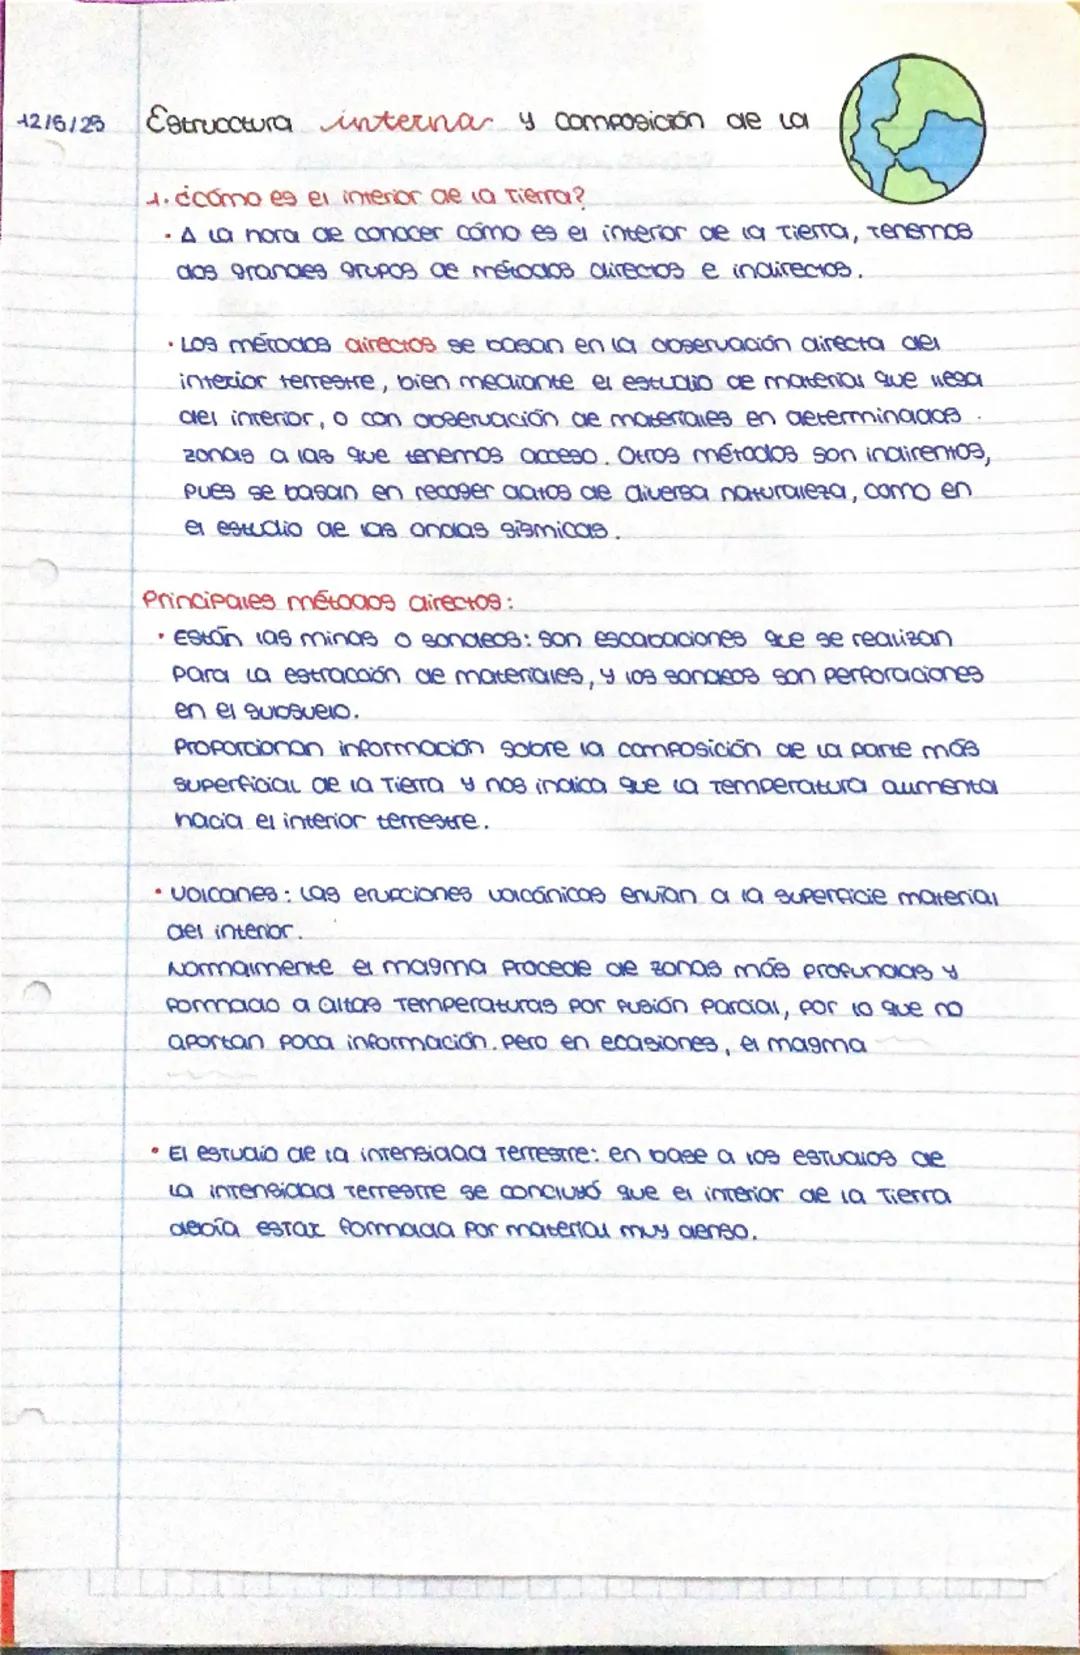 12/6/23 Estrucctura interna y composición de la
1. ¿cómo es el interior de la Tierra?
· A la hora de conocer cómo es el interior de la Tierra, tenemos
dos grandes grupos de métodos directos e indirectos.
· Los métodos directos se basan en la observación directa del
interior terrestre, bien mediante el estudio de material que llega
del interior, o con observación de materiales en determinadas
zonas a las que tenemos acceso. Otros métodos son indirentos,
pues se basan en recoger datos de diversa naturaleza, como en
el estudio de las ondas sísmicas.
Principales métodos directos:
· Están las minas o sondeos: son escabaciones que se realizan
para la estracción de materiales, y los sondeos son perforaciones
en el subsuelo.
Proporcionan información sobre la composición de la parte más
superficial de la Tierra y nos indica que la temperatura aumenta
hacia el interior terrestre.
· Volcanes: las erupciones volcánicas envían a la superficie material
del interior.
Normalmente el magma procede de zonas más profundas y
formado a altas temperaturas por fusión parcial, por lo que no
aportan poca información. Pero en ecasiones, el magma
· El estudio de la intensidad terrestre: en base a los estudios de
la intensidad terrestre se concluyó que el interior de la Tierra
debía estar formada por material muy denso.